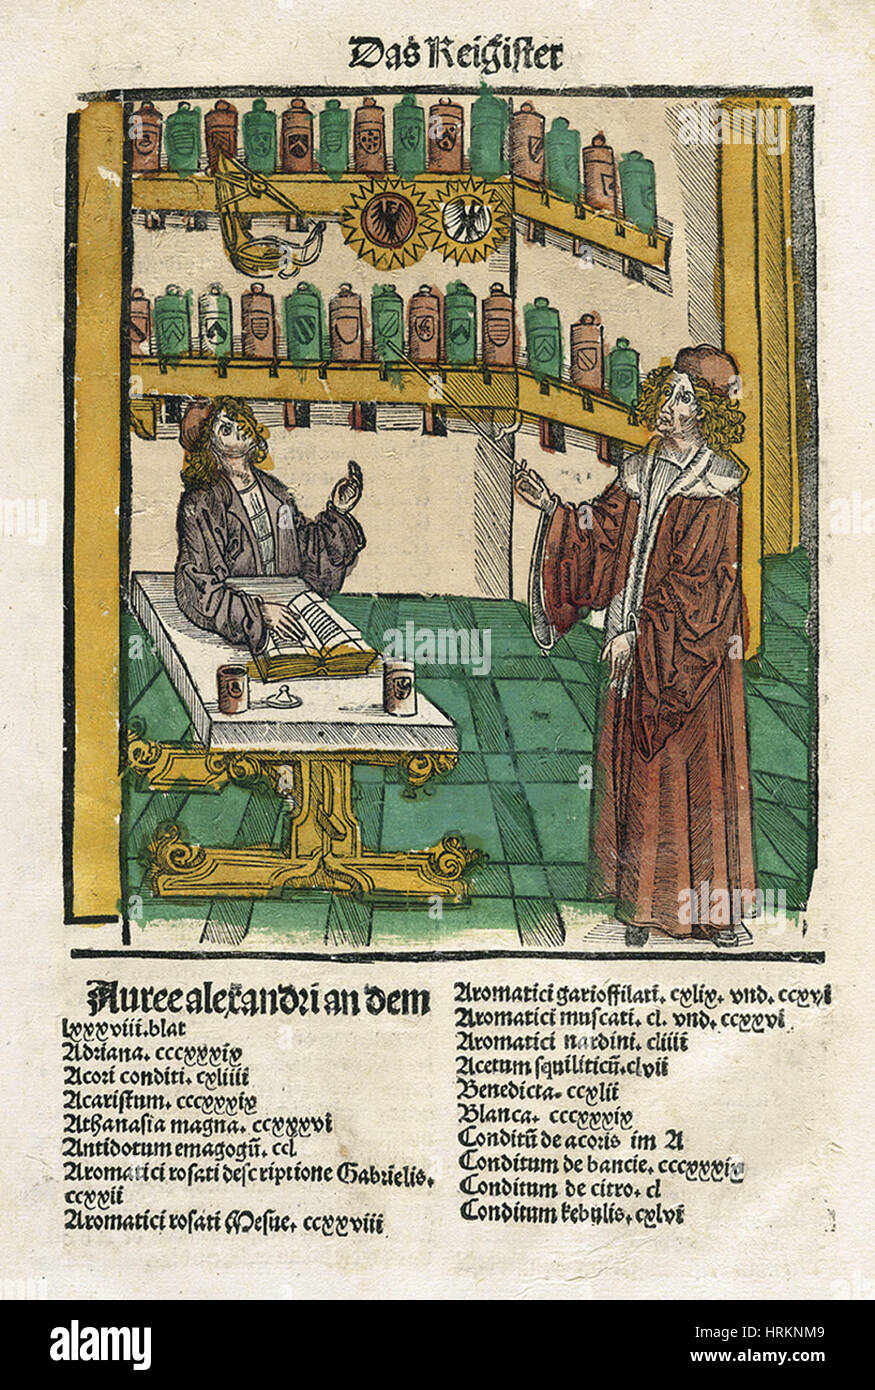 Das Reigister
Auree alexandri an dem
lxxxviii. blat
Adriana. cccxxxix
Acori conditi. cxliiii
Acaristum. cccxxxix
Athanasia magna. ccxxxvi
Antidotum emagogū. ccl
Aromatici rosati descriptione Gabrielis.
ccxxii
Aromatici rosati Mesue. ccxxviii
Aromatici garioffilati. cxlix. vnd. ccxvi
Aromatici muscati. cl. vnd. ccxxvi
Aromatici nardini. cliiii
Acetum squiliticū. clvii
Benedicta. ccxlii
Blanca. cccxxxix
Conditū de acoris im A
Conditum de bancie. cccxxxix
Conditum de citro. cl
Conditum kebulis. cxlvi
alamy stock photo
HRKNM9
www.alamy.com